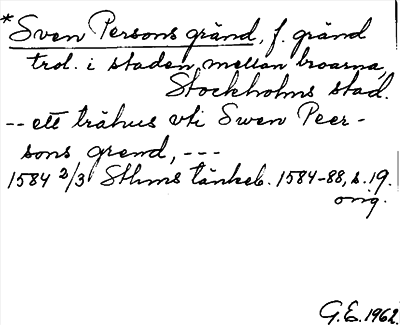 *Sven Persons gränd, f. gränd
trol. i staden mellan broarna,
Stockholms stad.
-- ett trähus vti Swen Peer-
sons grend, ---
1584 2/3 Sthms tänkeb. 1584-88, s. 19.
orig.
G.E. 1962.